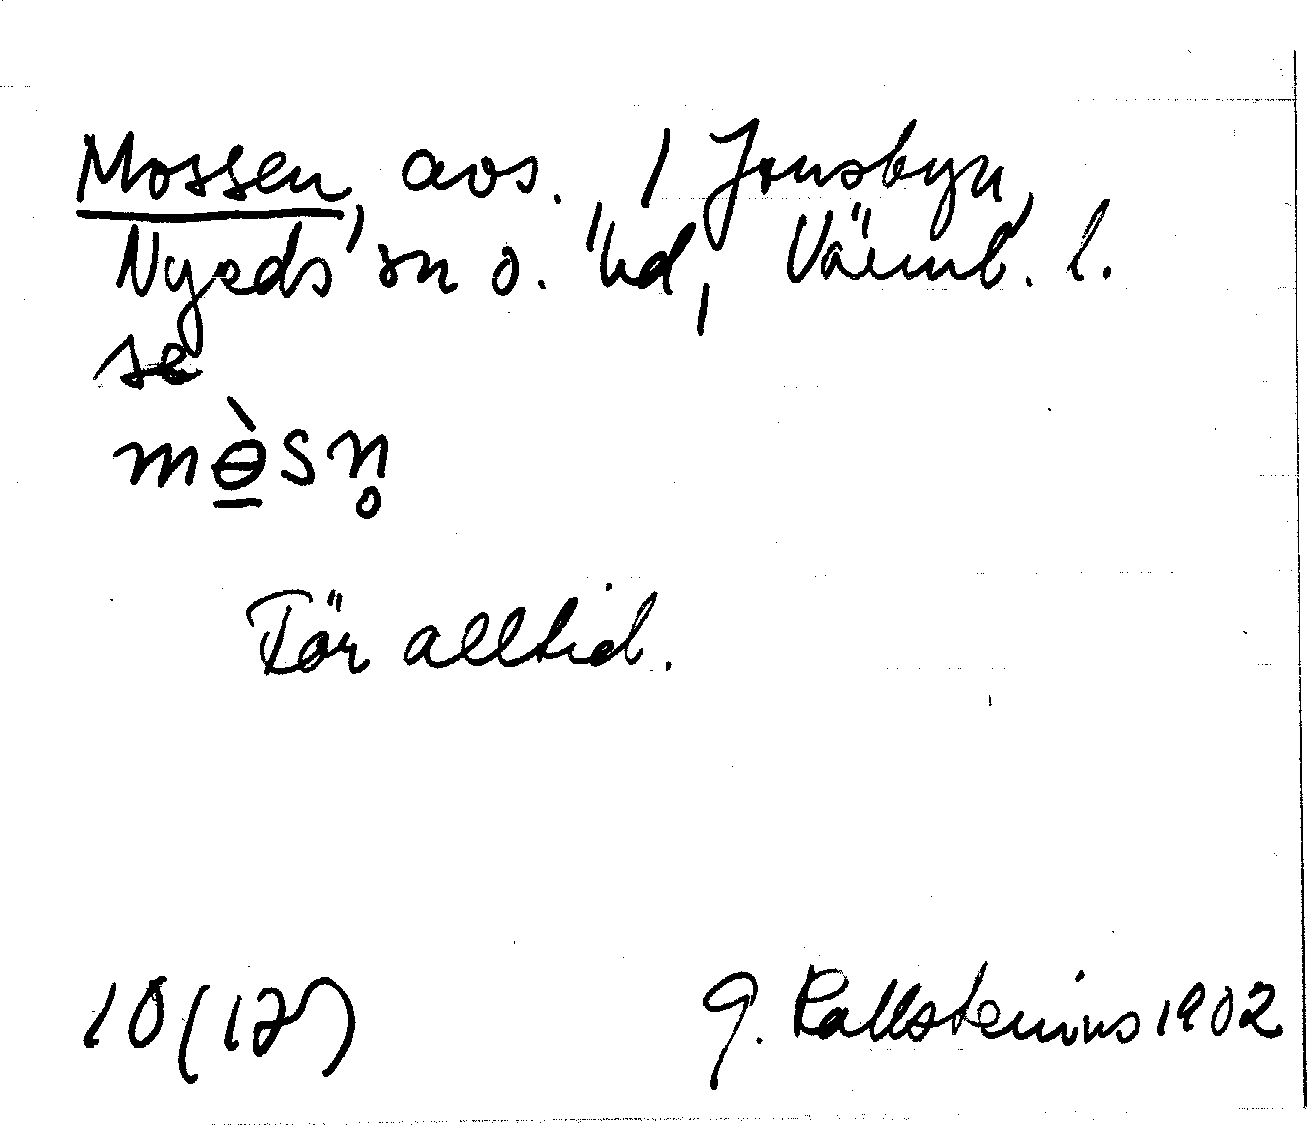 Mossen, avs. / Jonsbyn,
Nyeds sn o. hd, Värml. l.
se
mɵ̀sn̥
För alltid.
10 (17) G. Kallstenius 1902